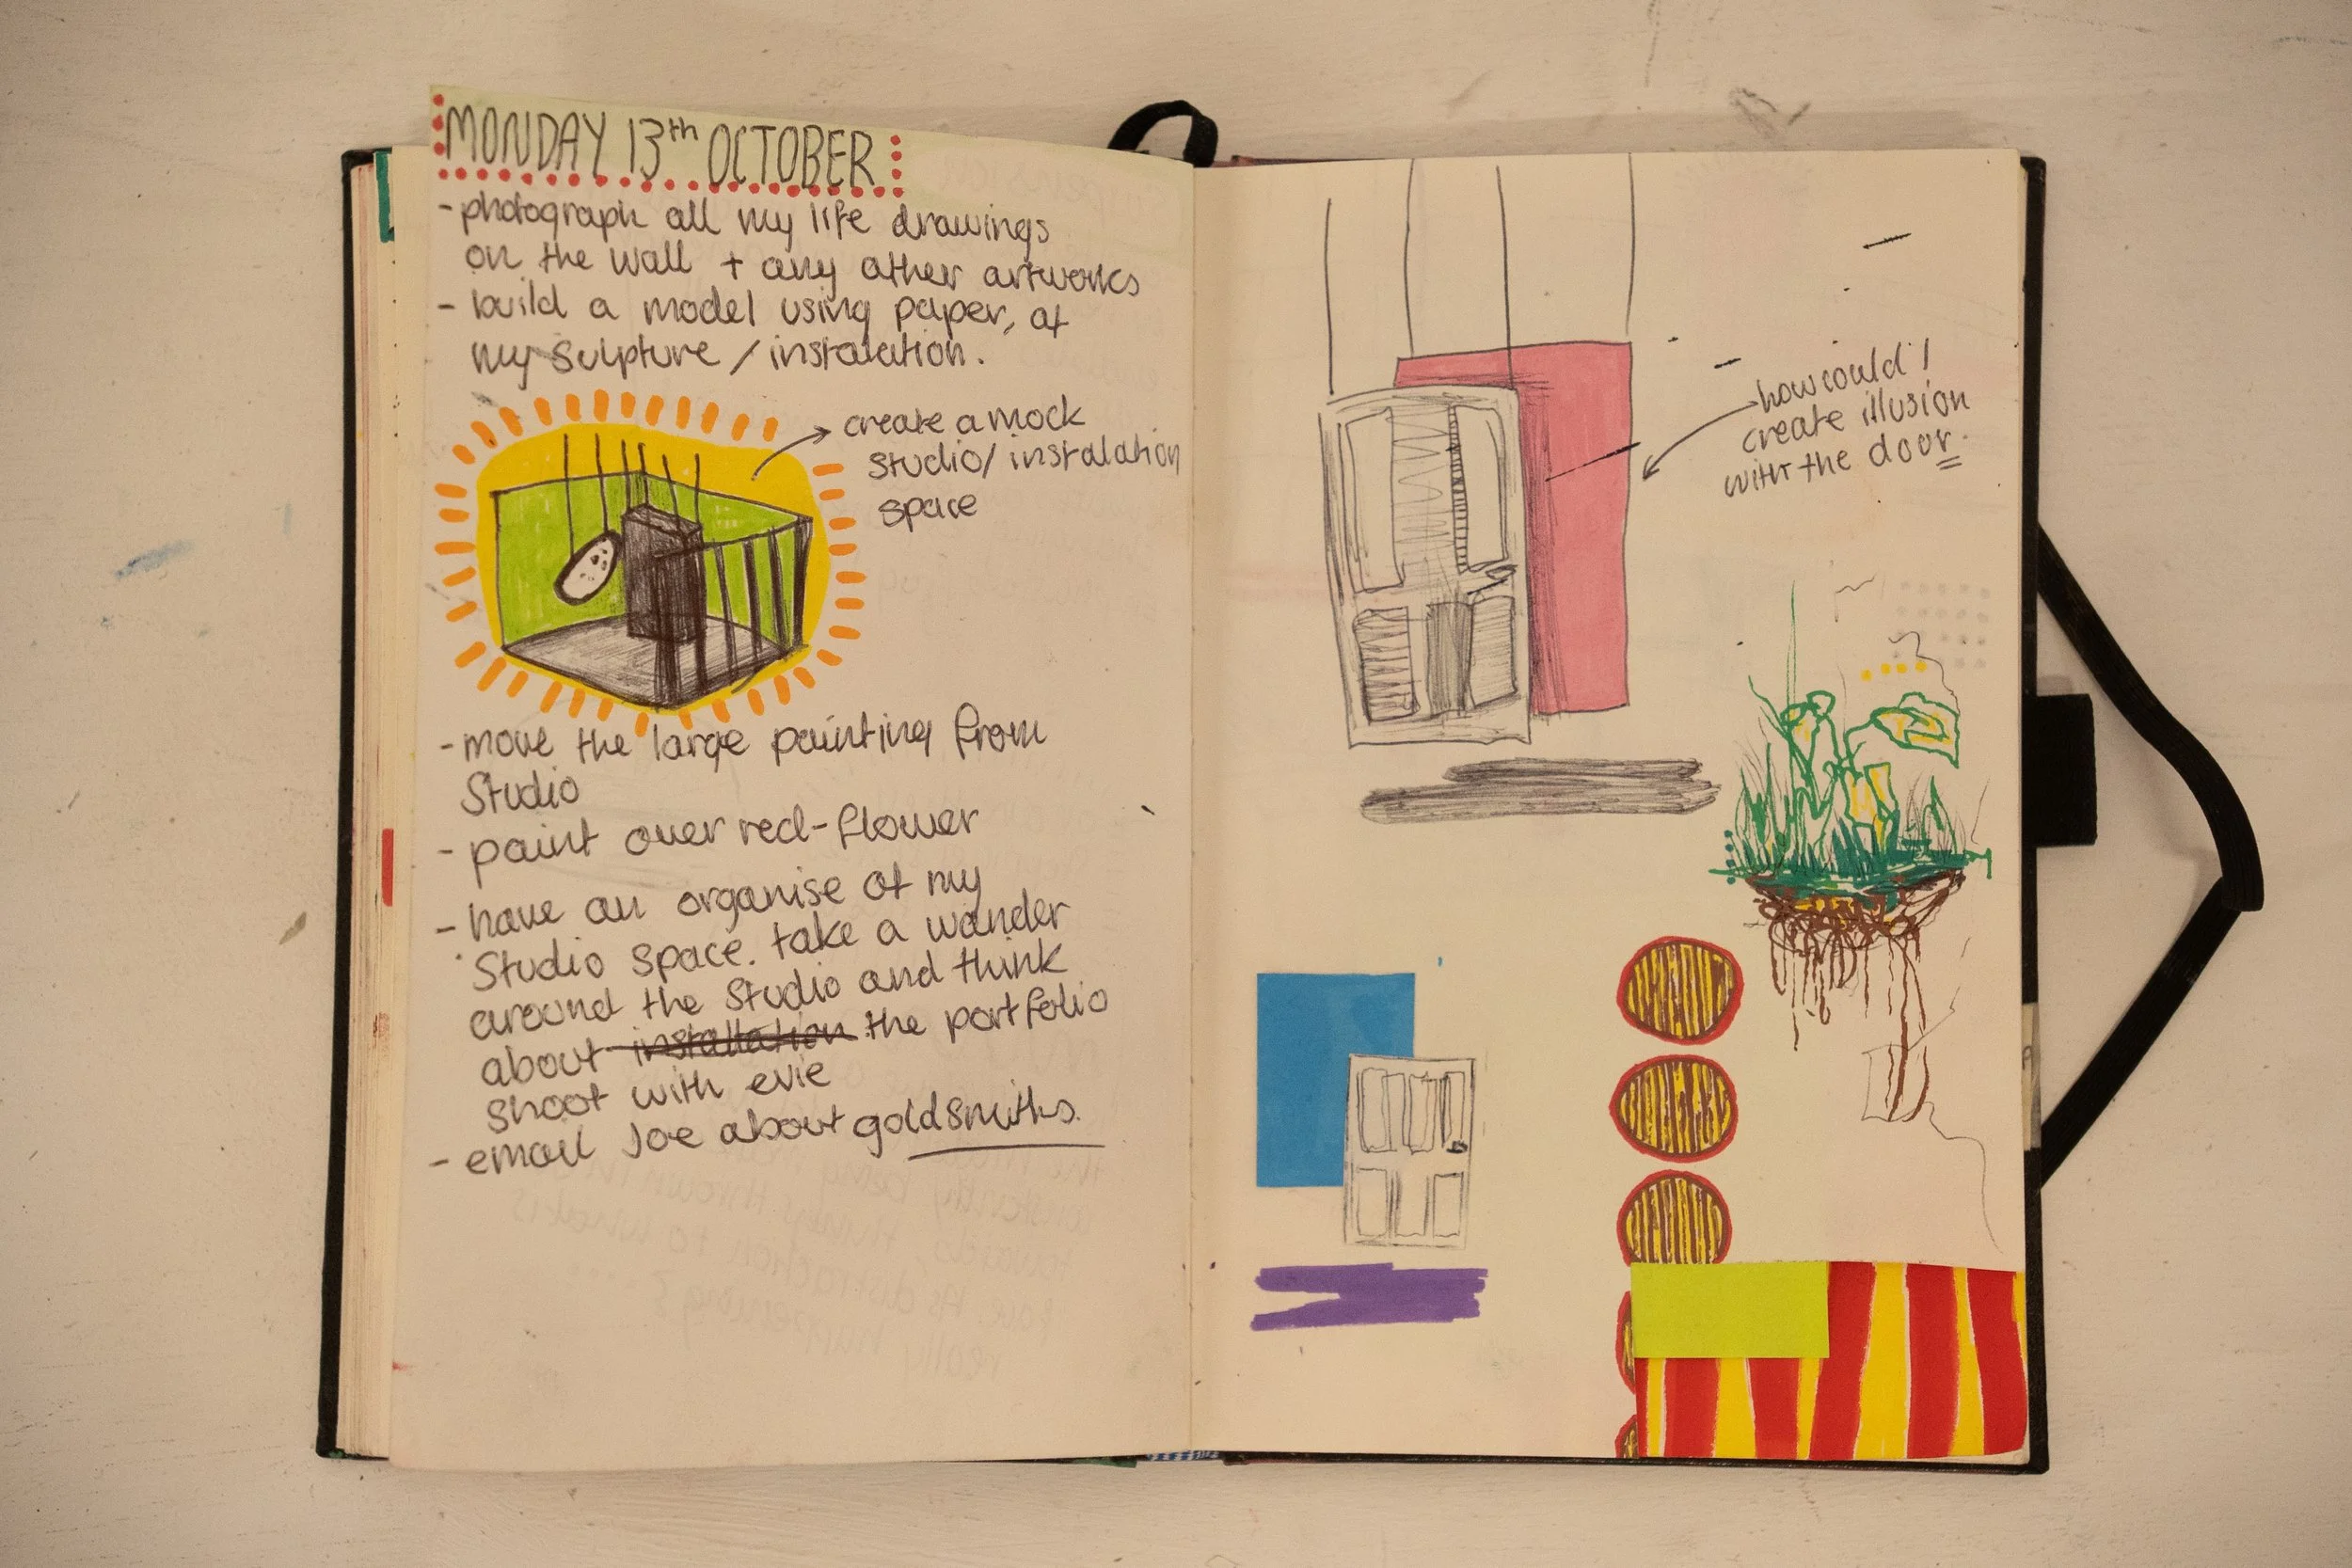 MONDAY 13th OCTOBER
- photograph all my life drawings
on the wall + any other artworks
- build a model using paper, of
my sculpture / instalation.
create a mock
studio/ instalation
space
- move the large painting from
Studio
- paint over red-flower
- have an organise of my
studio space. take a wander
around the studio and think
about installation the portfolio
shoot with evie
- email Joe about goldsmiths.
how could I
create illusion
with the door.